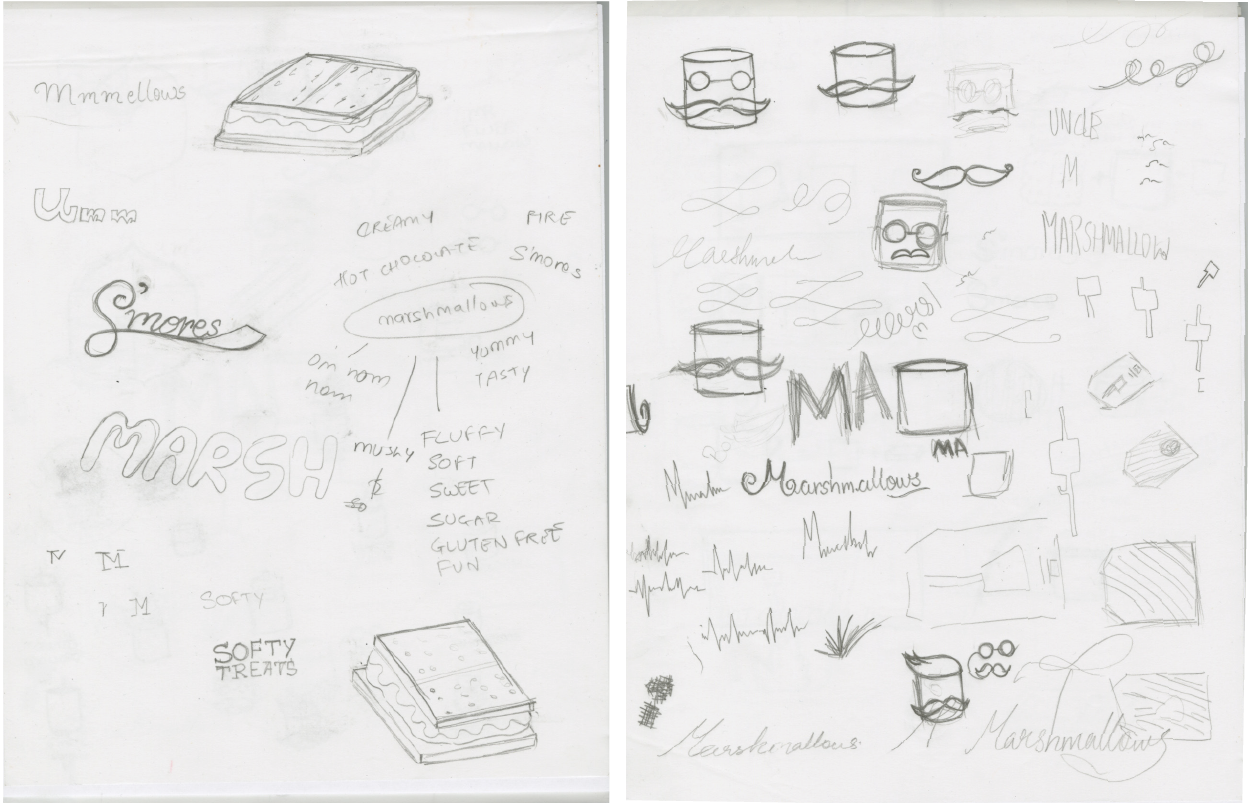 Mmmellows
Umm
CREAMY
FIRE
HOT CHOCOLATE
S'mores
marshmallows
S'mores
om nom
nom
YUMMY
TASTY
MARSH
MUSHY
FLUFFY
SOFT
SWEET
SUGAR
GLUTEN FREE
FUN
M
M
SOFTY
SOFTY
TREATS
UNCLE
M
MARSHMALLOW
MA
MA
Marshmallows
Marshmallows
Marshmallows